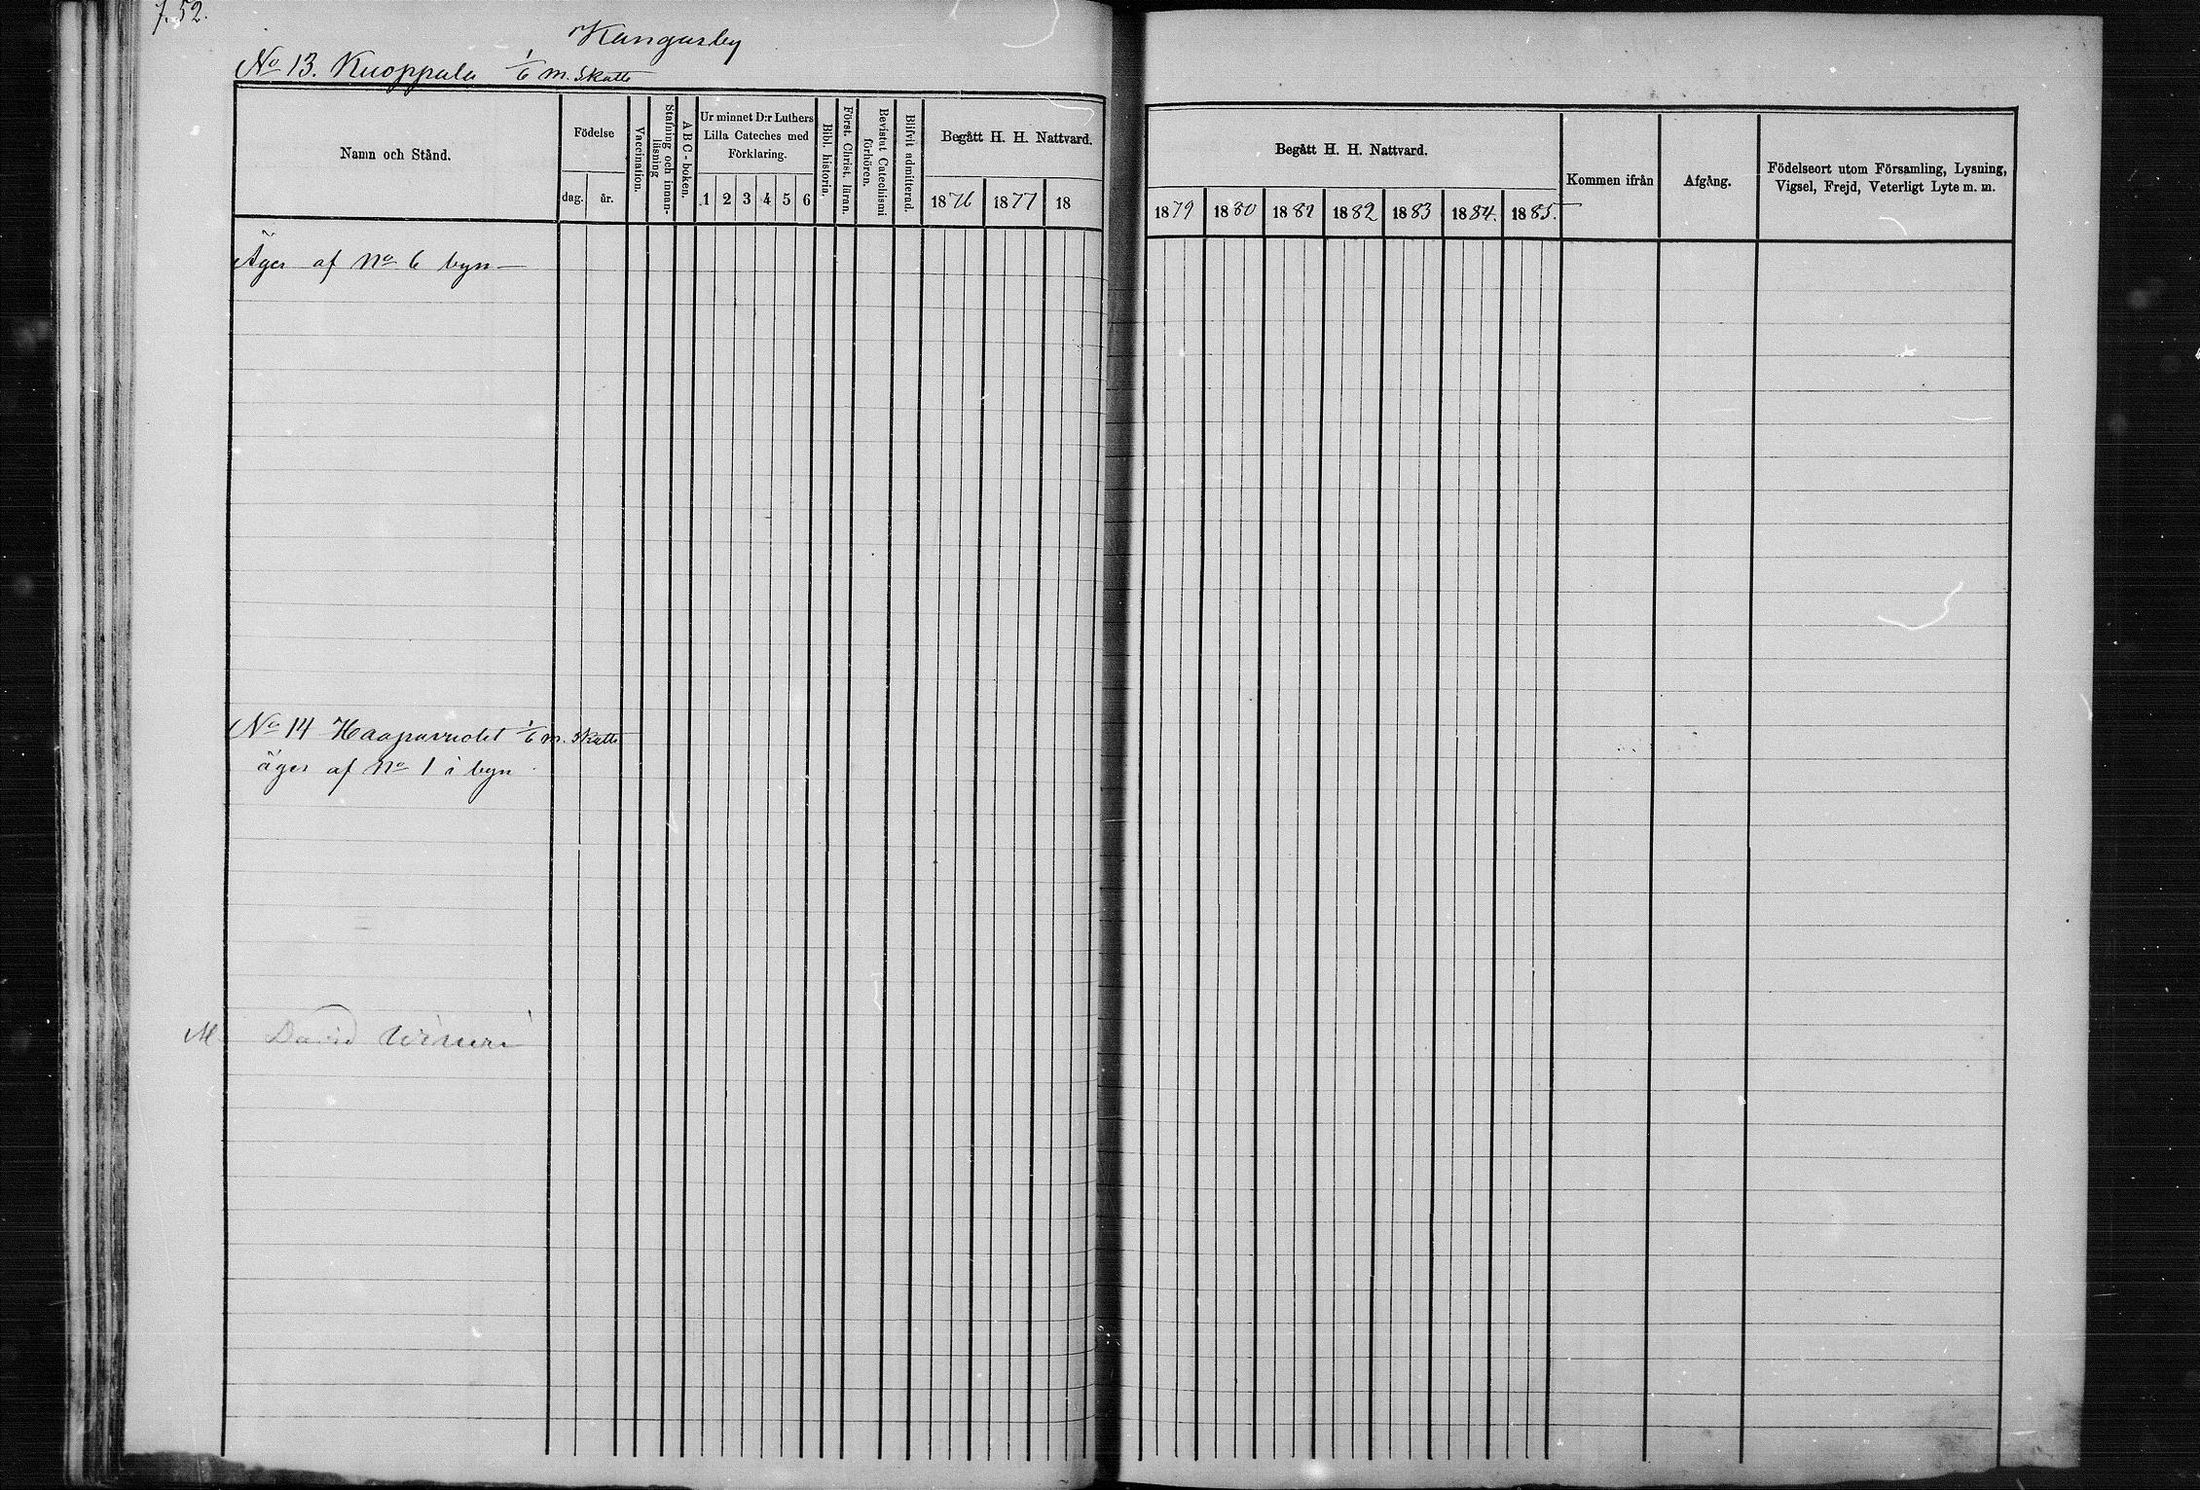 7.52.
Kangasby
No 13. Kuoppala 1/6 m. Skatte
Namn och Stånd.
Födelse
dag.
år.
Vaccination.
Stafning och innan-
läsning
A B C-boken.
Ur minnet D:r Luthers
Lilla Cateches med
Förklaring.
1 2 3 4 5 6
Bibl. historia.
Först. Christ. läran.
Bevistat Catechismi
förhören.
Blifvit admitterad.
Begått H. H. Nattvard.
1876 1877 18
Äges af No 6 byn
No 14 Haapavuolet 1/6 m. Skatte
äges af No 1 i byn
M. David
Begått H. H. Nattvard.
1879 1880 1881 1882 1883 1884. 1885.
Kommen ifrån
Afgång.
Födelseort utom Församling, Lysning,
Vigsel, Frejd, Veterligt Lyte m. m.